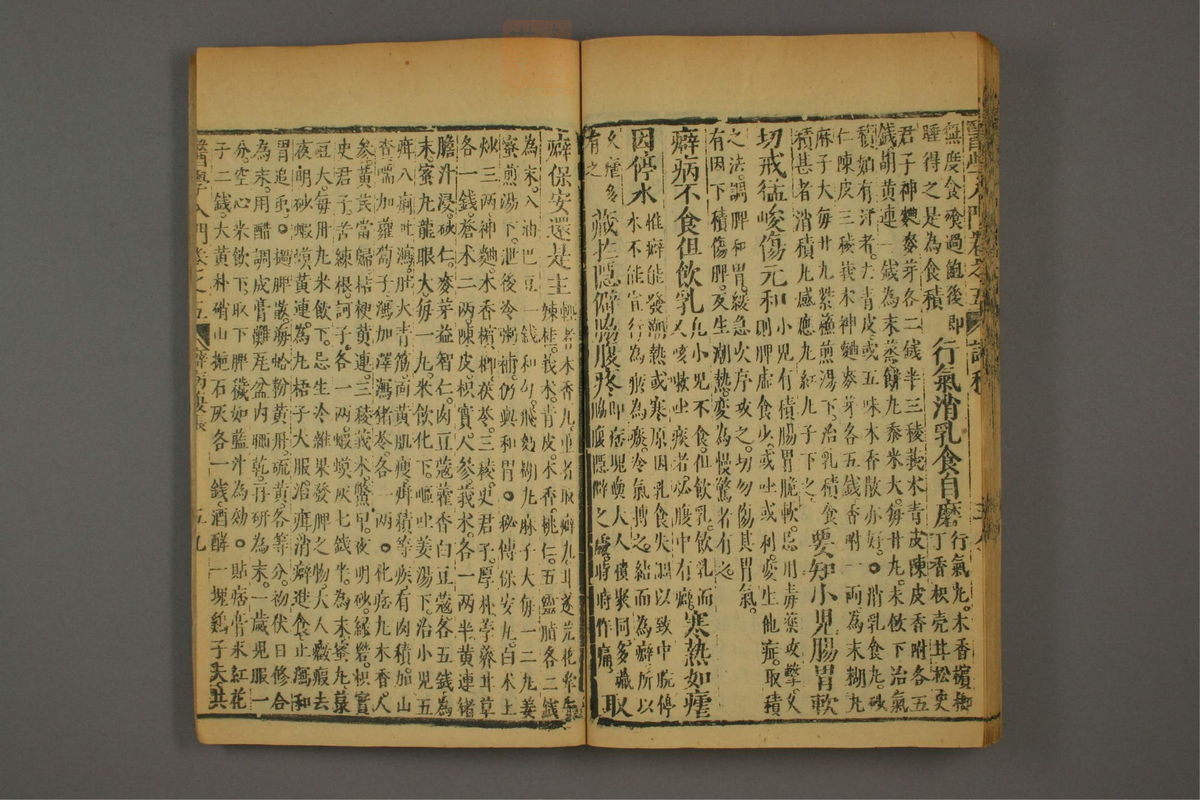 醫學入門卷之五
無度食喫過飽後即
睡得之是為食積
行氣消乳食自磨
行氣丸。木香檳榔
丁香枳壳甘松史
君子神麯麥芽各二錢半三稜莪朮青皮陳皮香附各五
錢胡黃連一錢為末蒸餅丸黍米大。每廿丸。米飲下治氣
積如有汗者。去青皮或五味木香散亦好。○消乳食丸。砂
仁陳皮三稜莪朮神麯麥芽各五錢香附一兩為末糊丸
麻子大每廿丸紫蘇煎湯下。治乳積食
積甚者消積丸感應丸紅丸子下之
要知小兒腸胃軟
切戒猛峻傷元和
小兒有積腸胃脆軟。忌用毒藥攻擊。攵
則脾虛食少。或吐或利。變生他症。取積
之法。調脾和胃。緩急次序攻之。切勿傷其胃氣。
有因下積傷脾。反生潮熱。變為慢驚者有之。
癖病不食但飲乳
凡小兒不食。但飲乳。飲乳而
又咳嗽吐痰者必腹中有癖。
寒熱如瘧
因停水
惟癖能發潮熱或寒原因乳食失調以致中脘停
水不能宣行為痰為痰冷氣搏之結而為癖所以
又瘧多
有之
藏在隱僻脇腹疼
即痞塊與大人積聚同多藏
脇腹隱僻之處。時時作痛
取
癖保安還是主
輕者木香丸。重者取癖丸甘遂芫花牽牛
辣桂。莪朮。青皮。木香。桃仁。五靈脂各二錢
為末。入油巴豆一錢和勻。飛麪糊丸麻子大每一二丸姜
蜜煎湯下。泄後冷粥補。仍與和胃。○秘傳保安丸。白朮土
炒三兩神麯。木香檳榔茯苓。三稜。史君子。厚朴葶藶甘草
各一錢。蒼朮二兩陳皮枳實人參莪朮。各一兩半黃連猪
膽汁浸。砂仁。麥芽益智仁。肉豆蔻藿香白豆蔻各五錢為
末。蜜丸龍眼大每一丸。米飲化下。嘔吐姜湯下。治小兒五
疳八痢吐瀉。肚大青筋面黃肌瘦疳積等疾。有肉積。加山
查。喘加蘿蔔子瀉加澤瀉猪苓。各一兩。○化痞丸木香人
參黃芪當歸。桔梗黃連。三稜莪朮鱉甲。夜明砂綠礬。枳實
史君子。苦練根。訶子。各一兩。蝦蟆灰七錢半。為末蜜丸菉
豆大。每卅丸米飲下。忌生冷雜果發脾之物大人癥瘕去
夜明砂蝦蟆黃連為丸梧子大服治癖消癖進食止瀉和
胃追虫。○搨脾散海蛤粉黃丹。硫黃。各等分。初伏日修合
為末。用醋調成膏攤瓦盆內晒乾。再研為末。一歲兒服一
分。空心米飲下。取下脾穢如藍汁為効。○貼痞膏水紅花
子二錢。大黃朴硝山梔石灰各一錢。酒酵一塊雞子大共
醫學入門卷之五
五九